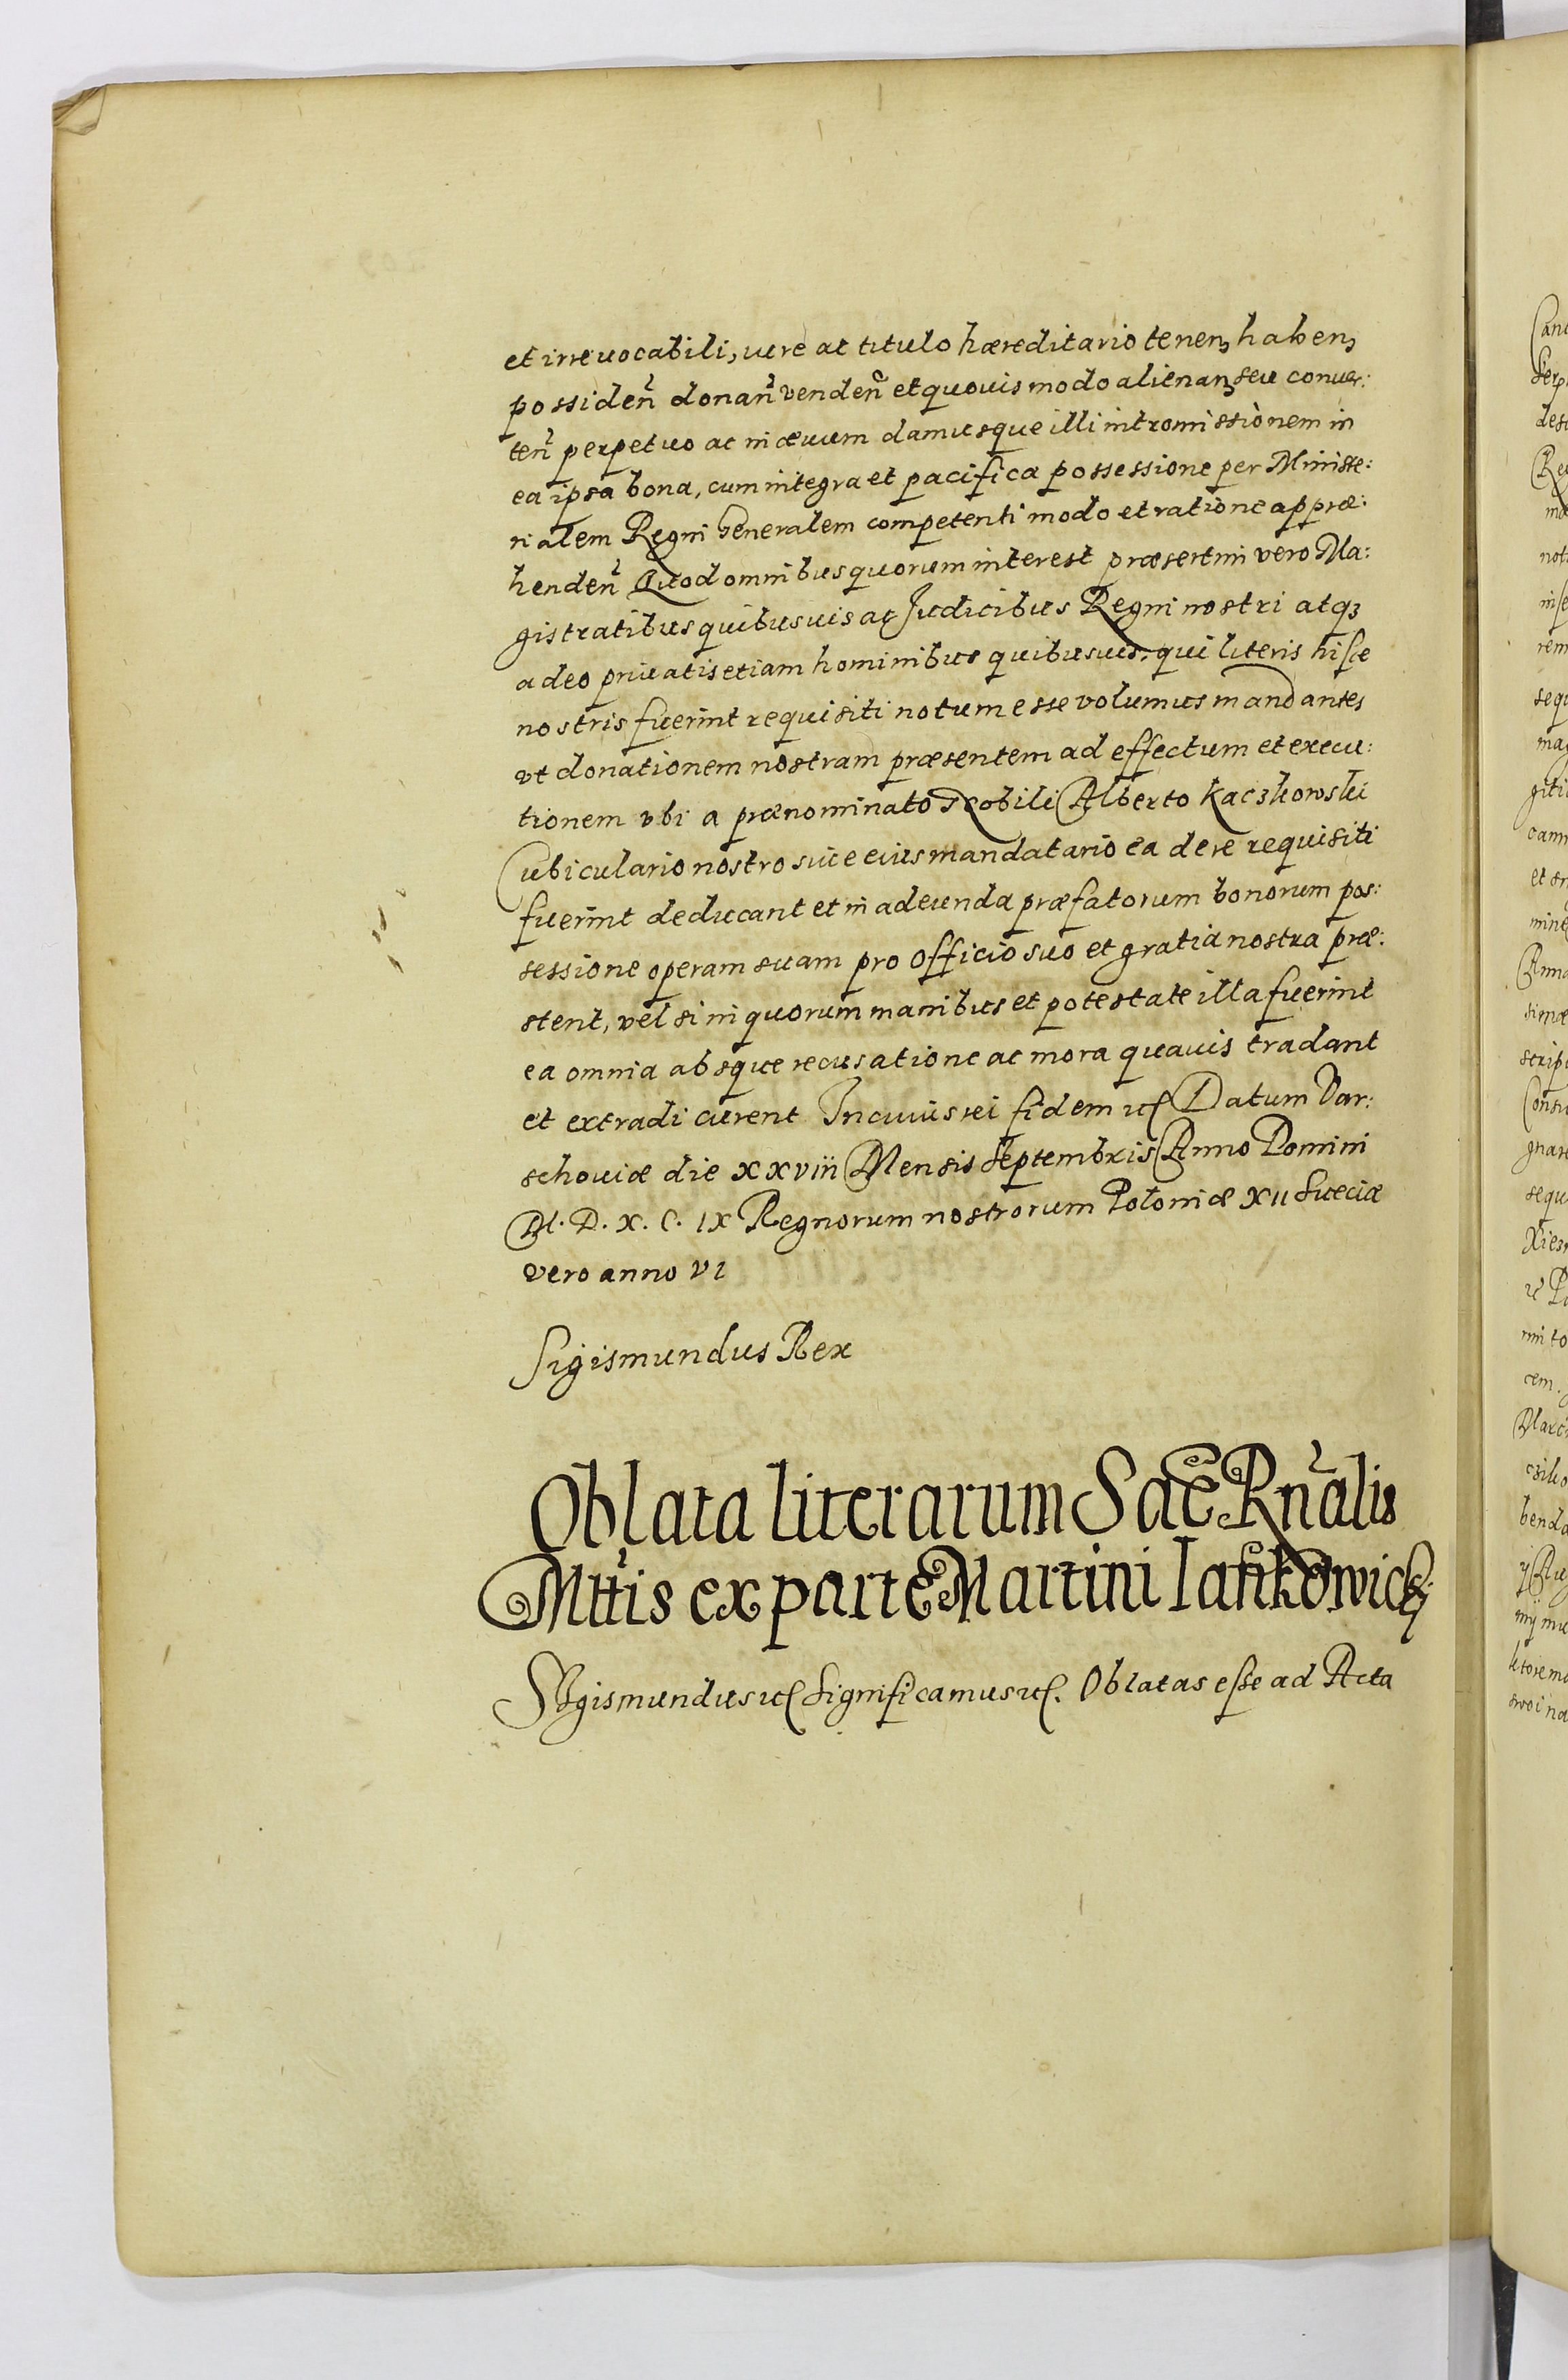 et irreuocabili, iure ac titulo hæreditario tenenꝫ habenꝫ
possideñ donañ vendeñ et quouis modo alienanꝫ seu conuer:
teñ perpetuo ac in æuum damusque illi intromissionem in
ea ipsa bona, cum integra et pacifica possessione per Ministe:
rialem Regni Generalem competenti modo et ratione appræ:
hendeñ Quod omnibus quorum interest præsertim vero Ma:
gistratibus quibusuis ac Judicibus Regni nostri atqꝫ
adeo priuatis etiam hominibus quibusuis, qui literis hisce
nostris fuerint requisiti notum esse volumus mandantes
vt donationem nostram præsentem ad effectum et execu:
tionem vbi a prænominato Nobili Alberto Kaczkowski
Cubiculario nostro siue eius mandatario ea de re requisiti
fuerint deducant et in adeunda præfatorum bonorum pos:
sessione operam suam pro officio suo et gratia nostra præ:
stent, vel si in quorum manibus et potestate illa fuerint
ea omnia absque recusatione ac mora quauis tradant
et extradi curent In cuius rei fidem etc Datum Var:
schouiæ die xxviii Mensis Septembris Anno Domini
M. D. X. C. IX Regnorum nostrorum Poloniæ XII Sueciæ
vero anno VI
Sigismundus Rex
Oblata literarum Sac Rñalis
Mttis ex parte Martini Iankowicꝫ
Sigismundus etc Significamus etc. Oblatas esse ad Acta